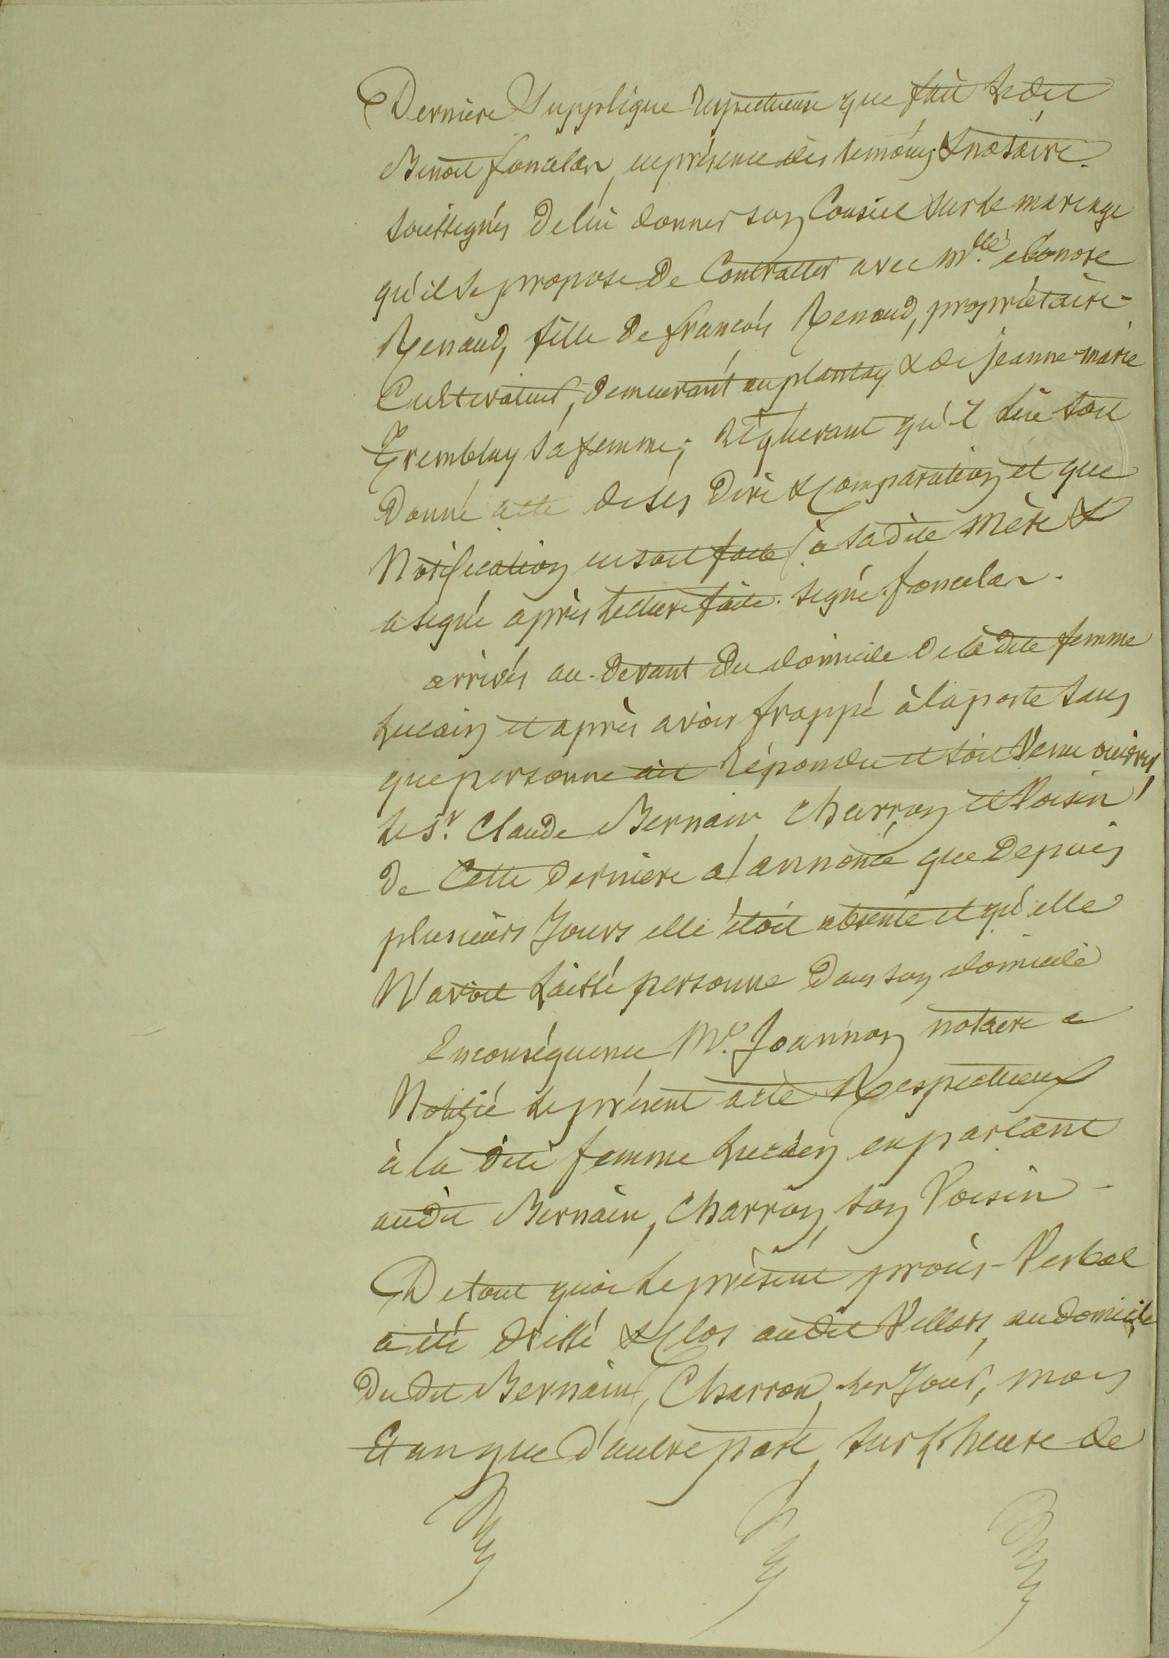 Derniere Supplique respectueuse que fait ledit
Benoit foncelan, en présence des temoins & notaire
soussignés de lui donner son Conseil sur le mariage
qu'il se propose de Contracter avec Mlle elonore
Renaud, fille de françois Renaud, propriétaire
Cultivateur, demeurant au plantay & de jeanne-marie
Tremblay sa femme; réquerant qu'il lui soit
Donné acte de ses Dire & Comparution et que
Notification en soit faite à sadite Mère &
a signé après lecture faite. signé foncelan.
arrivés au-devant du domicile de la dite femme
Lucain et après avoir frappé à la porte sans
que personne ait répondu et soit Venu ouvrir,
le Sr. Claude Bernain Charron et Voisin
de Cette derniere a annoncé que depuis
plusieurs Jours elle étoit absente et qu'elle
N'avoit laissé personne dans son domicile
En conséquence Me. Joannon notaire a
Notifié le présent acte Respectueux
à la dite femme Lucain en parlant
audit Bernain, Charron, son Voisin -
De tout quoi le présent procès-Verbal
a été dressé & Clos audit Villars, au domicile
Du dit Bernain, Charron, les Jour, mois
Et an que d'autre part, sur l'heure de